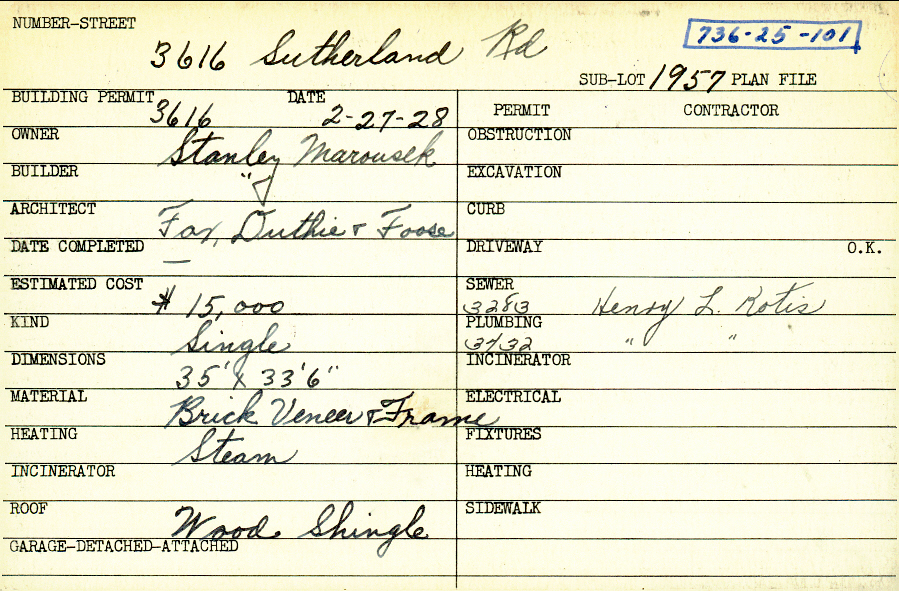 NUMBER-STREET
3616 Sutherland Rd
736-25-101
SUB-LOT 1957 PLAN FILE
BUILDING PERMIT 3616 DATE 2-27-28
OWNER Stanley Marousek
BUILDER "
ARCHITECT Fox, Duthie & Foose
DATE COMPLETED —
ESTIMATED COST $ 15,000
KIND Single
DIMENSIONS 35' X 33'6"
MATERIAL Brick Veneer & Frame
HEATING Steam
INCINERATOR
ROOF Wood Shingle
GARAGE-DETACHED-ATTACHED
PERMIT CONTRACTOR
OBSTRUCTION
EXCAVATION
CURB
DRIVEWAY O.K.
SEWER
3283 Henry L. Kotis
PLUMBING
3432 " "
INCINERATOR
ELECTRICAL
FIXTURES
HEATING
SIDEWALK